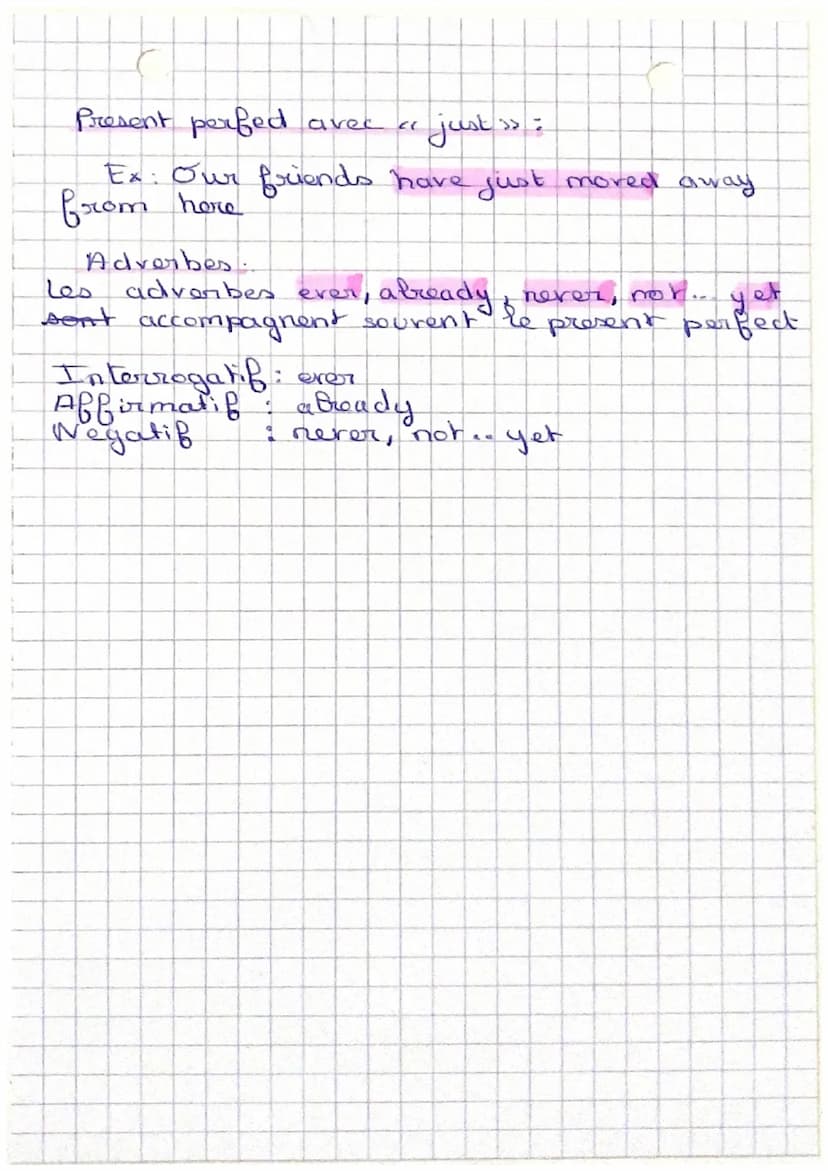 Present perfect avec « just » :
Ex : Our friends have just moved away
from here
Adverbes :
Les adverbes ever, already, never, not... yet
sont accompagnent souvent le present perfect
Interrogatif : ever
Affirmatif : already
Négatif : never, not... yet